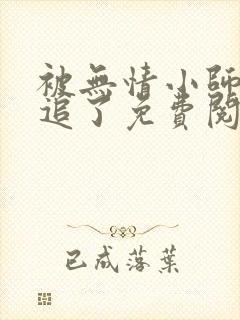 被無情小師
追了免費閱
已成落葉